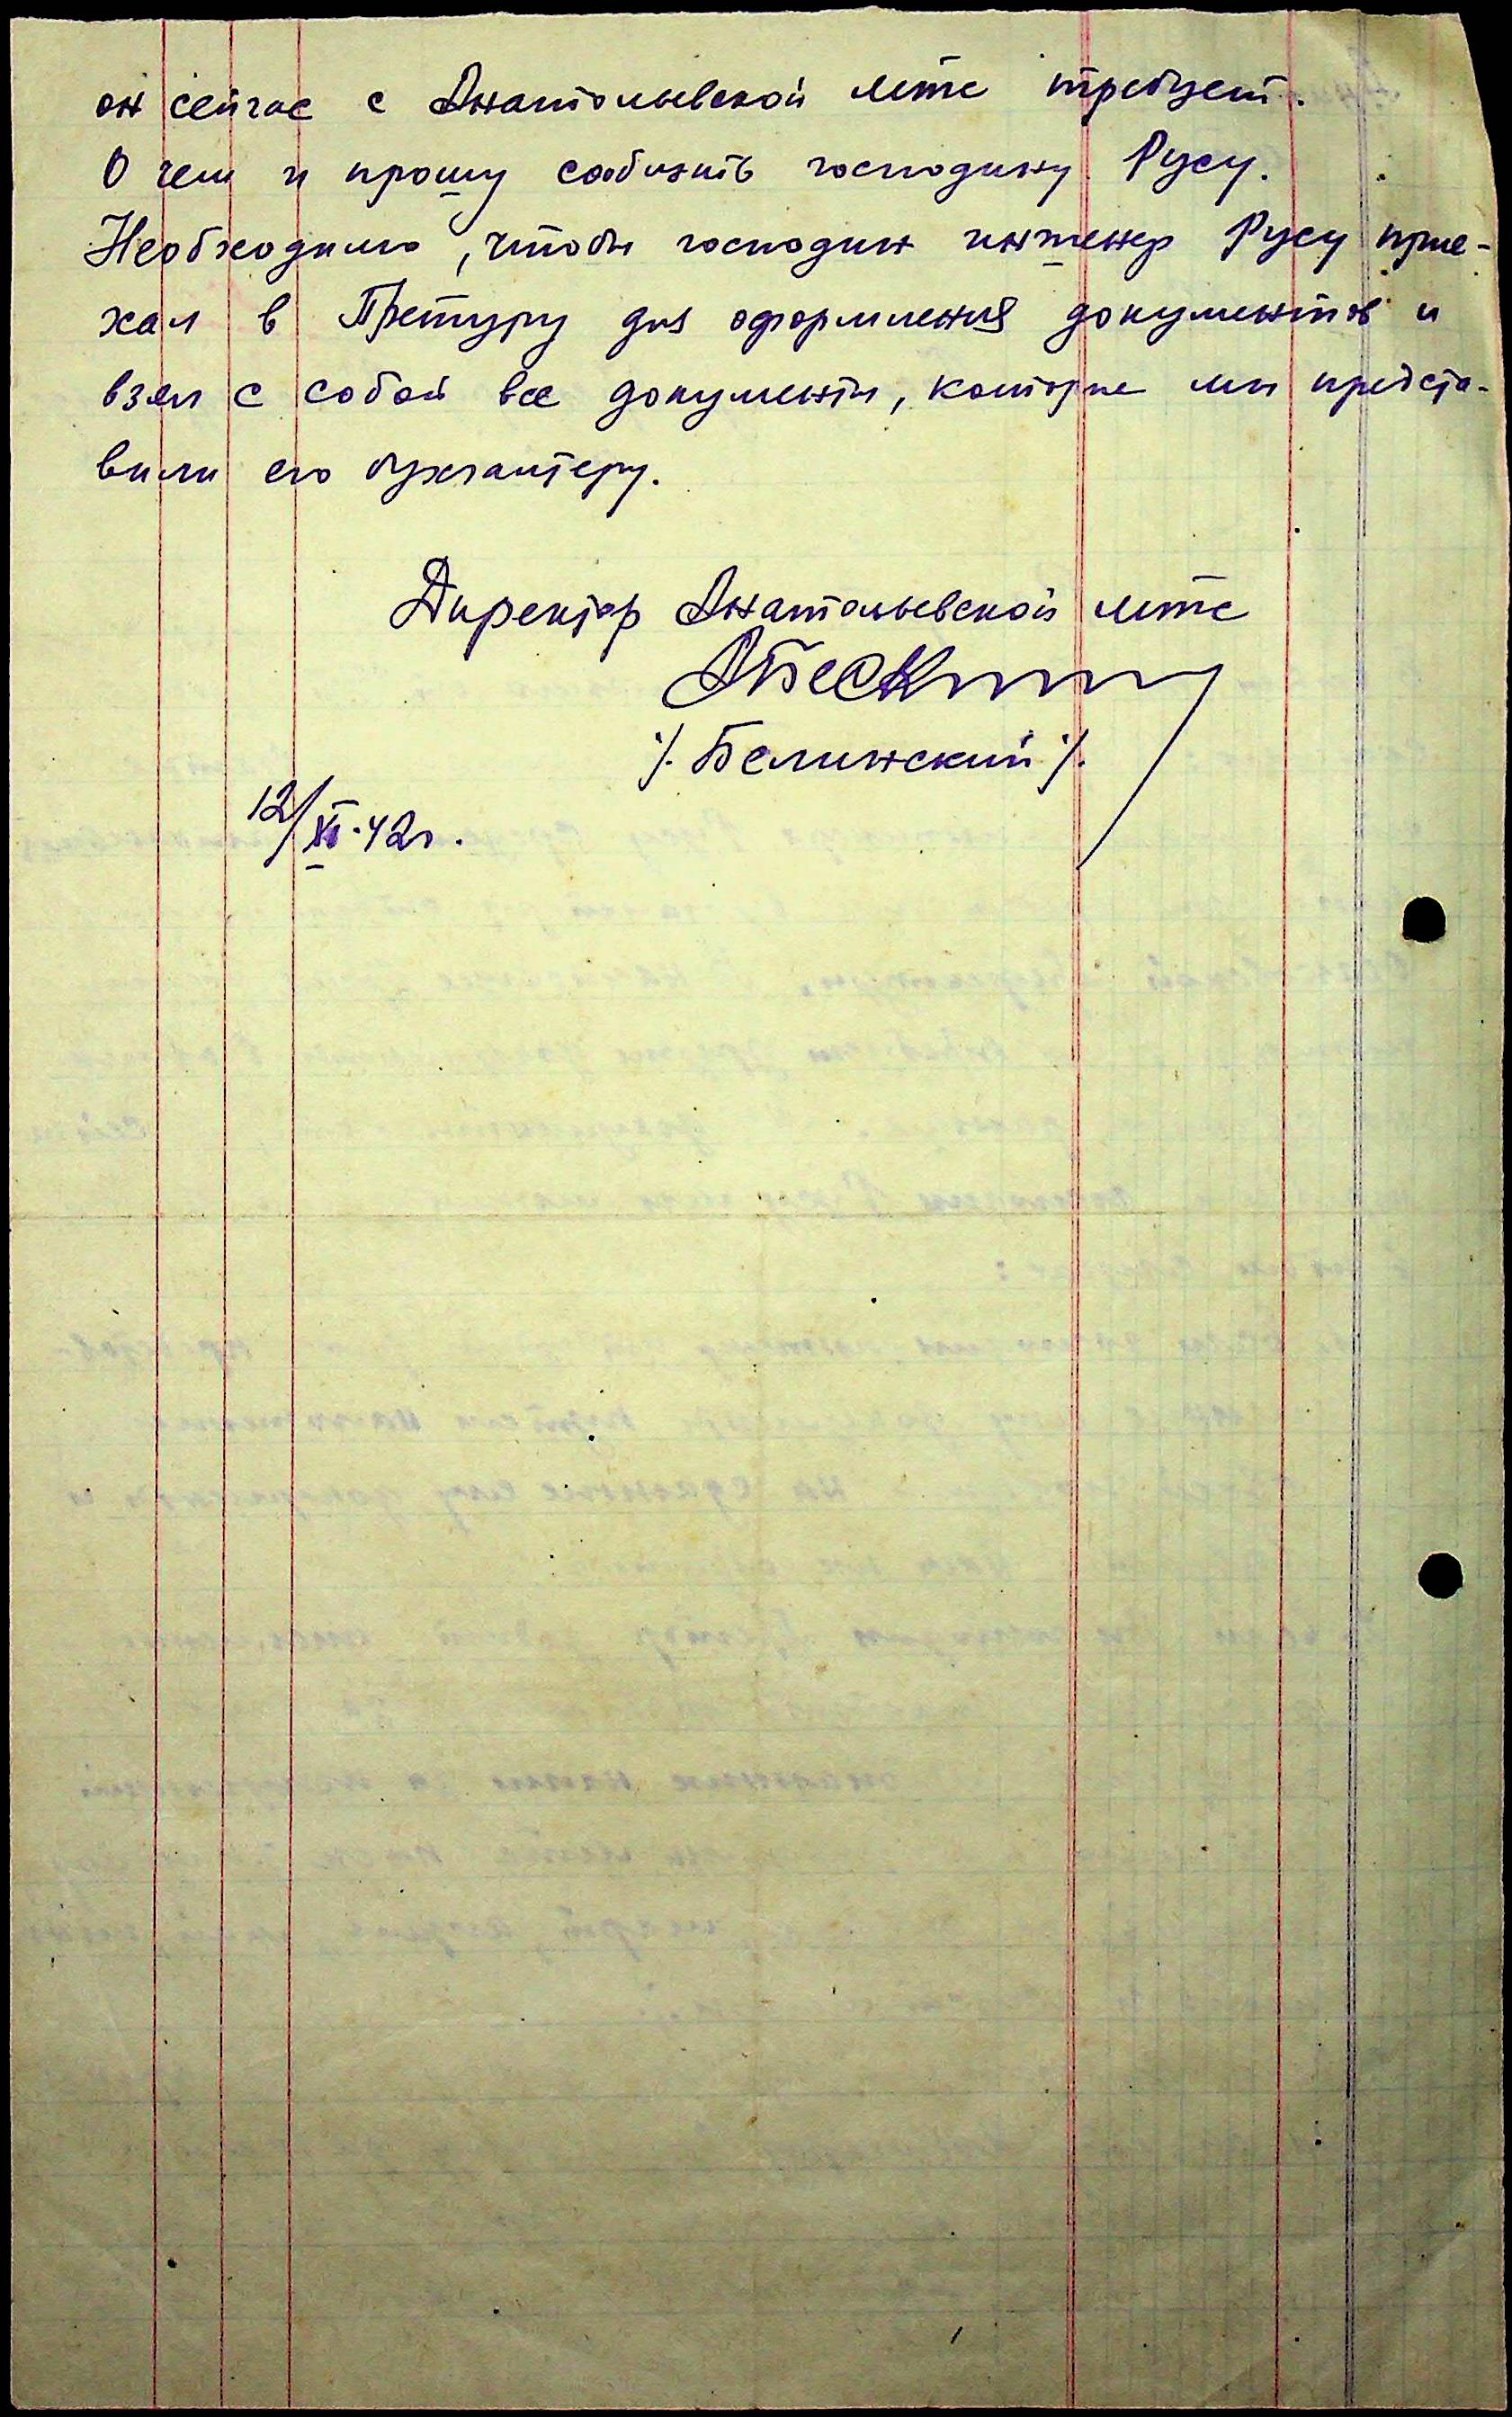 он сейчас с Анатольевской мтс требует.
О чем и прошу сообщить господину Русу.
Необходимо, чтобы господин инженер Русу прие-
хал в Претуру для оформления документов и
взял с собой все документы, которые мы предста-
вили его бухгалтеру.
Директор Анатольевской мтс
/. Белинский /.
12/XI-42г.